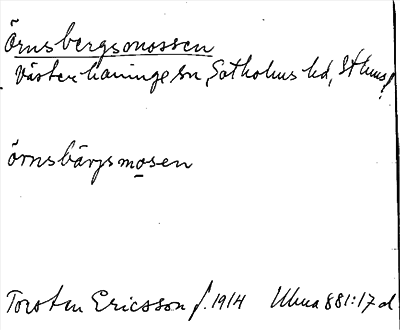 Örnsbergsmossen
Västerhaninge sn, Sotholms hd, Sthms l
örnsbärjsmosen
Torsten Ericsson f. 1914 Uma 881:17 d